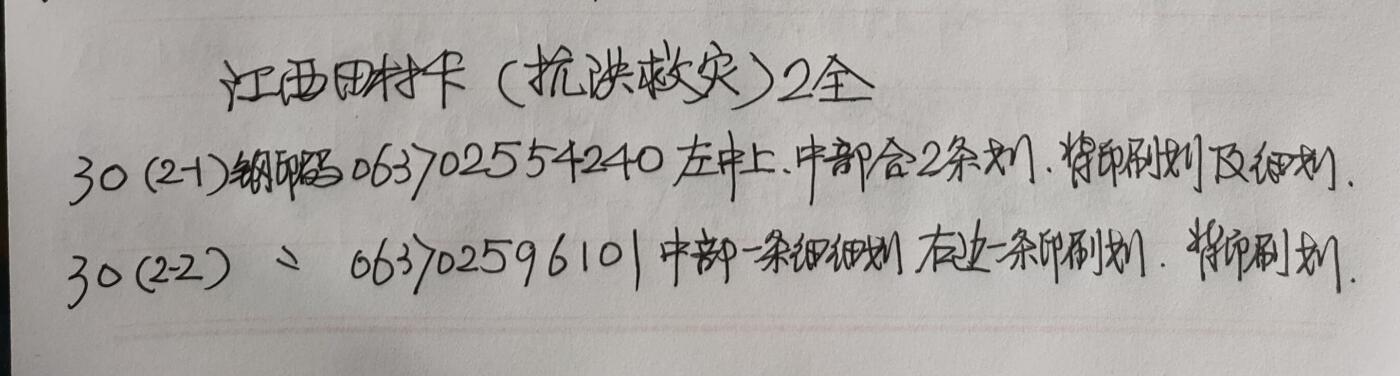 江西田村卡（抗洪救灾）2全
30(2-1)钢印码063702554240左中上、中部合2条划.背印刷划及细划.
30(2-2) 〃 063702596101中部一条细细划 右边一条印刷划. 背印刷划.